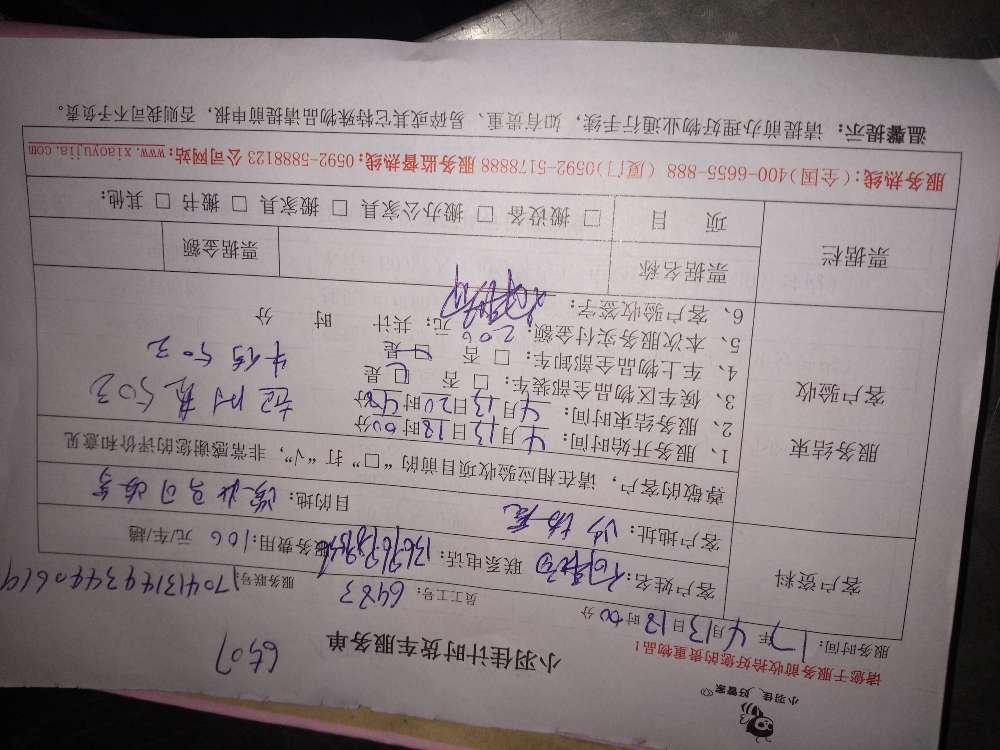 小羽佳、好管家
请您于服务前收拾好您的贵重物品！
小羽佳计时货车服务单
6507
服务时间：17年4月13日18时00分
员工工号：6483
服务联号：
客户资料
客户姓名：
联系电话：
服务费用：106元/车/趟
客户地址：
目的地：
服务结束
客户验收
尊敬的客户，请在相应验收项目前的“□”打“√”，非常感谢您的评价和意见
1、服务开始时间：4月13日18时00分
2、服务结束时间：4月13日20时48分
3、候车区物品全部装车：□ 否 □ 是
4、车上物品全部卸车：□ 否 □ 是
5、本次服务实付金额：200元；共计 时 分
6、客户验收签字：
票据栏
票据名称
票据金额
项 目
□ 搬设备 □ 搬办公家具 □ 搬家具 □ 搬书 □ 其他：
服务热线：(全国)400-6655-888 (厦门)0592-5178888 服务监督热线：0592-5888123 公司网站：www.xiaoyujia.com
温馨提示：请提前办理好物业通行手续，如有贵重、易碎或其它特殊物品请提前申报，否则我司不予负责。